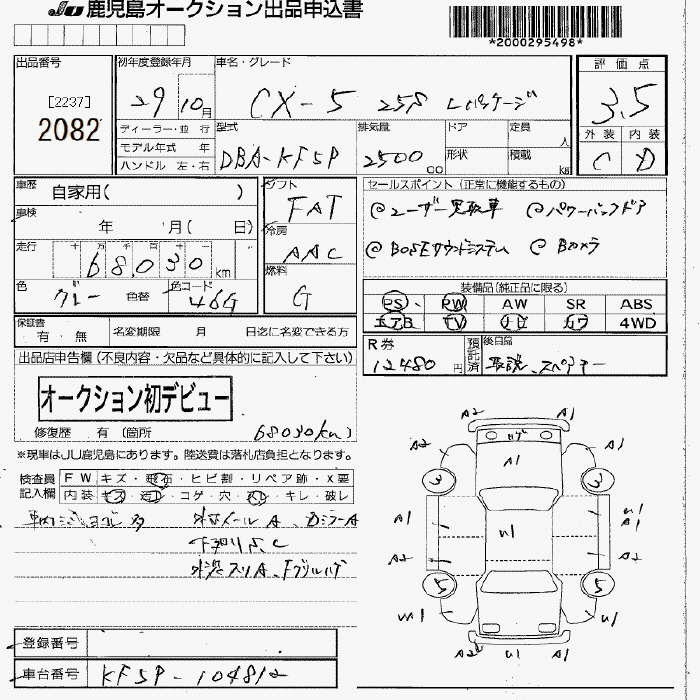 JU 鹿児島オークション出品申込書
*2000295498*
出品番号
[2237]
2082
初年度登録年月
29 10月
車名・グレード
CX-5 25S Lパッケージ
評価点
3.5
外装 内装
C D
ディーラー・並行
モデル年式 年
ハンドル 左・右
型式
DBA-KF5P
排気量
2500 cc
ドア
形状
定員 人
積載 kg
車歴 自家用( )
車検 年 月( 日)
走行 十 万 千 百 十
68030 km
色 グレー 色替
色コード 46G
シフト
FAT
冷房
AAC
燃料
G
セールスポイント(正常に機能するもの)
@ユーザー買取車 @パワーバックドア
@BOSEサウンドシステム @Bカメラ
装備品(純正品に限る)
PS PW AW SR ABS
エアB TV ナビ カワ 4WD
保証書 有・無
名変期限 月 日迄に名変できる方
R券
12480円
預託済
後日品
取説、スペアキー
出品店申告欄(不良内容・欠品など具体的に記入して下さい)
オークション初デビュー
修復歴 有 〔箇所
68030km〕
※現車はJU鹿児島にあります。陸送費は落札店負担となります。
検査員記入欄
FW キズ・飛石・ヒビ割・リペア跡・X要
内装 キズ・汚レ・コゲ・穴・スレ・キレ・破レ
外装メール A、Dミラー A
下廻りS、C
登録番号
車台番号 KF5P-104812
A2 A1
A2 A1 A1
3 3
A1 U1 U1 A1
A2 A2
5 5
W1 U1
A2 U1 A1